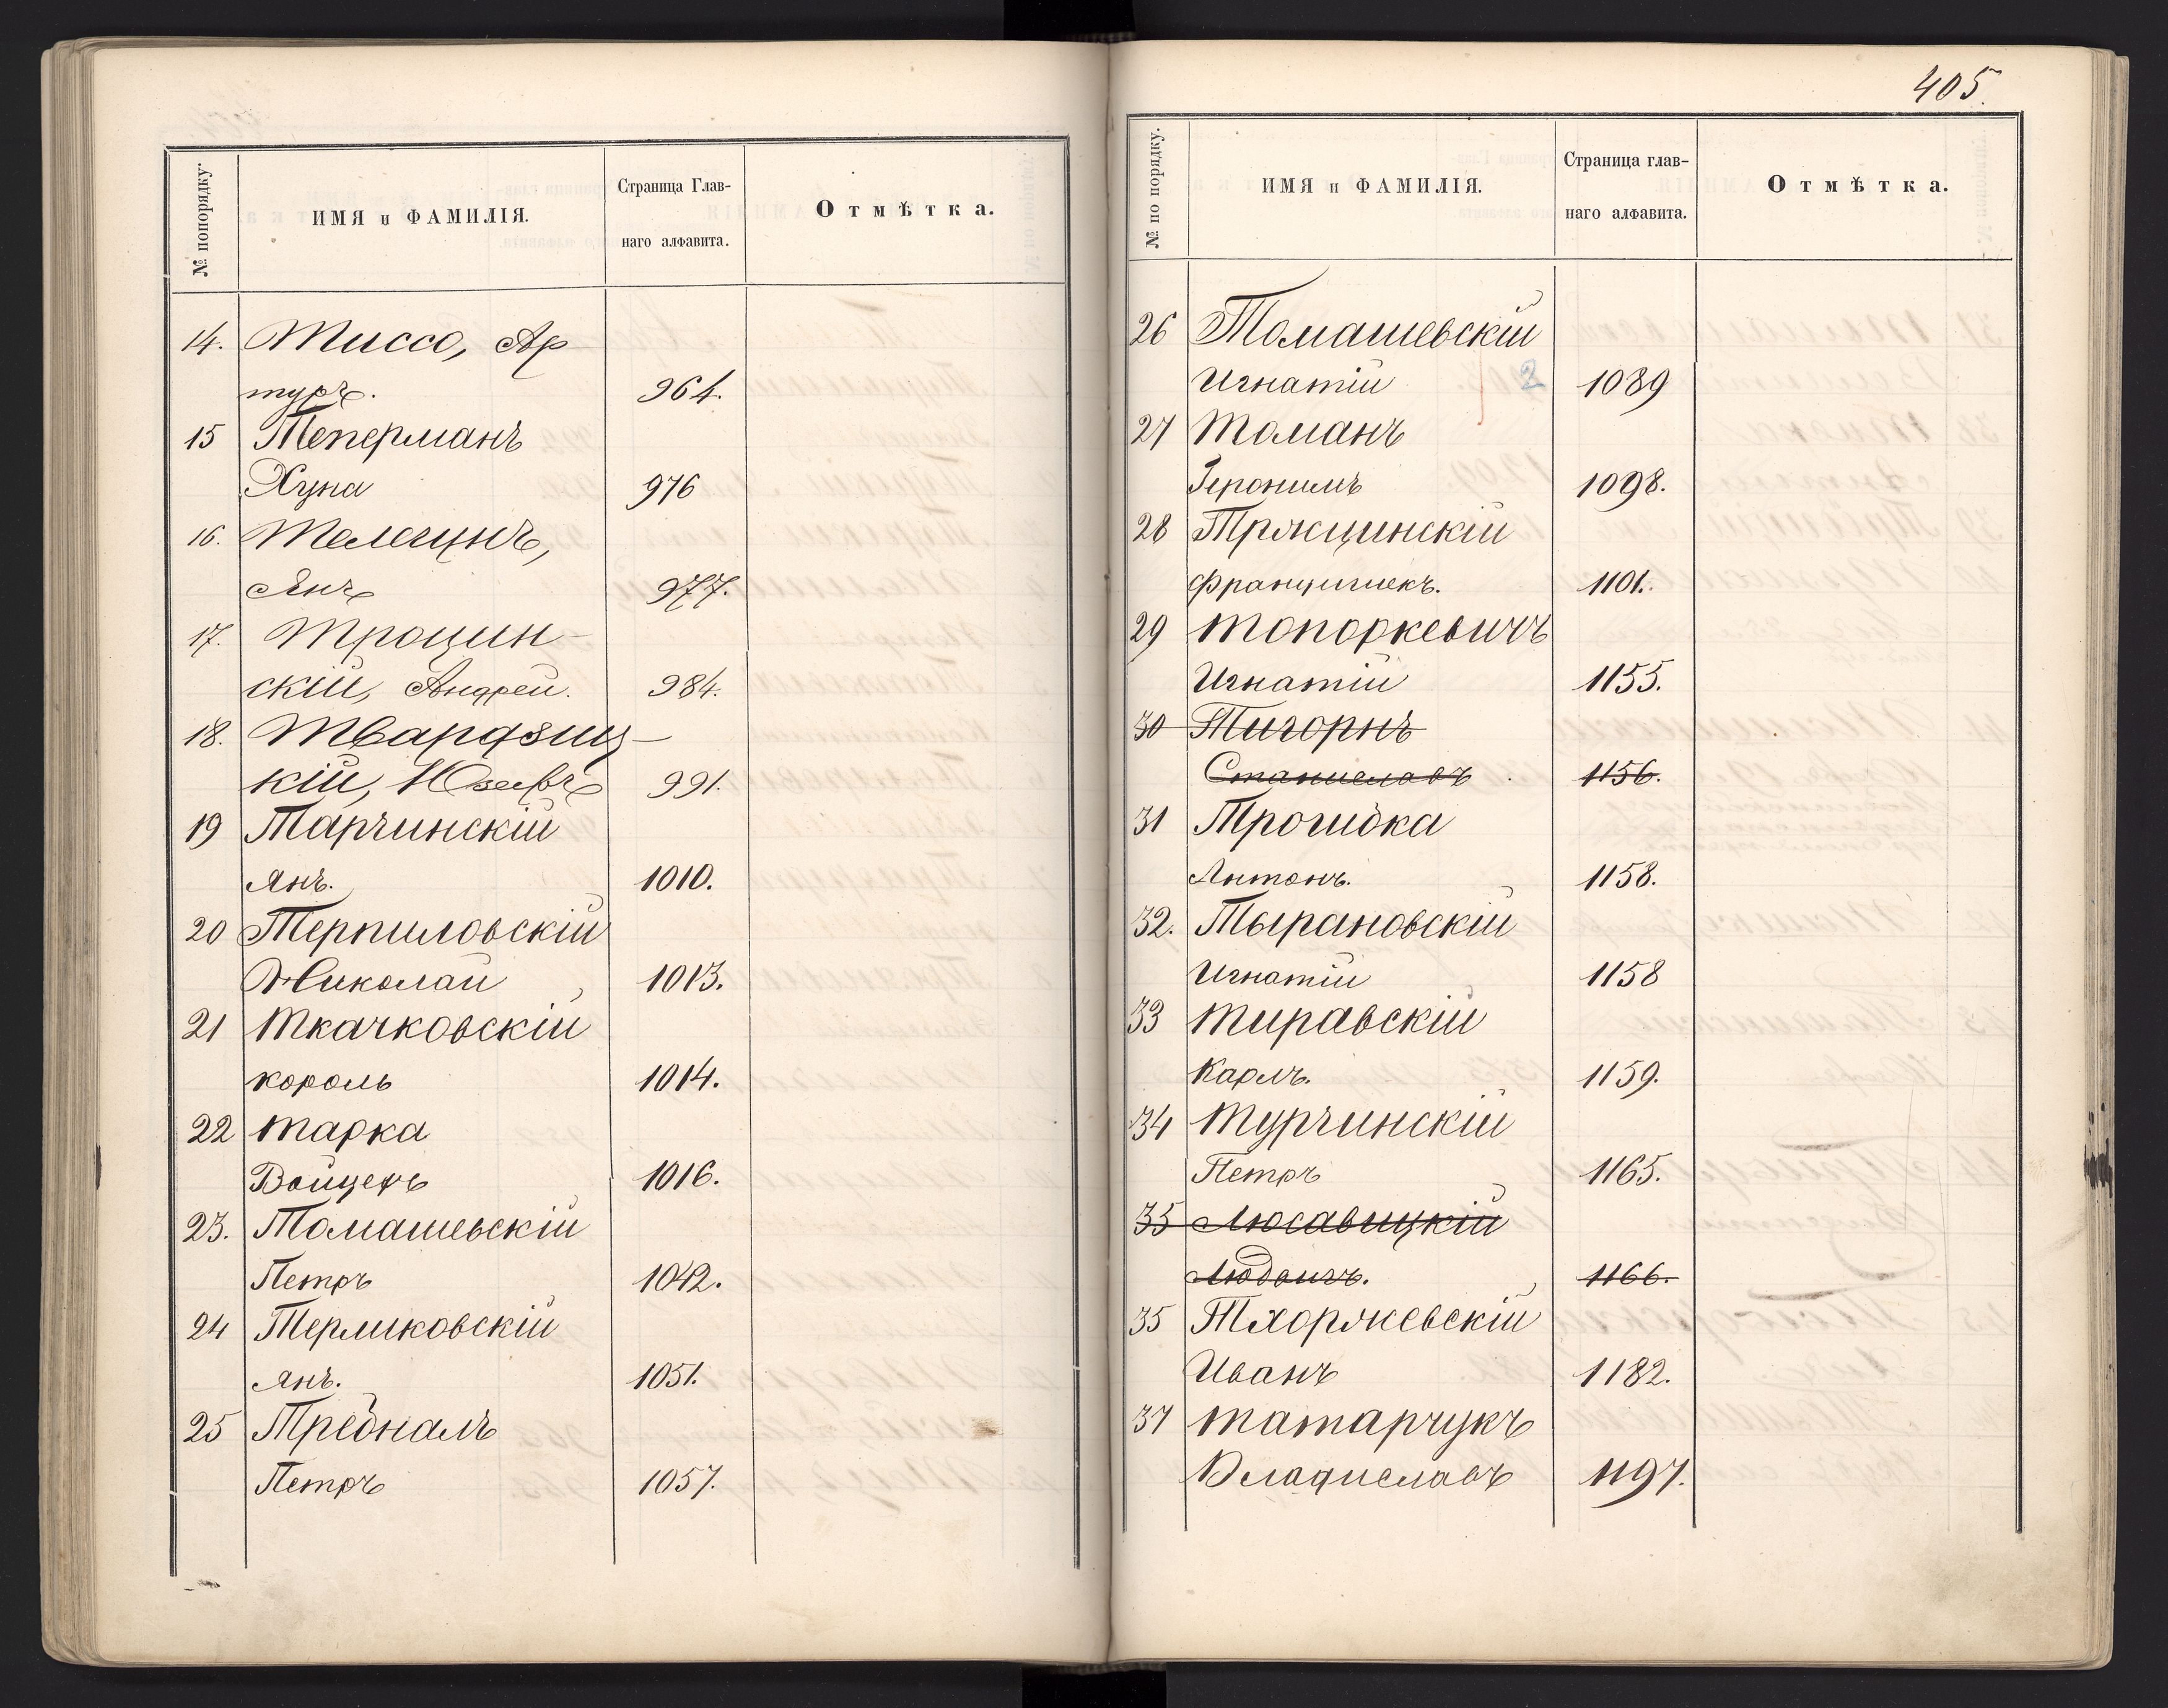 № попорядку.
ИМЯ и ФАМИЛІЯ.
Страница Глав-
наго алфавита.
Отмѣтка.
14. Тиссо, Ар-
туръ. 964.
15 Теперманъ
Хуна 976
16. Телегинъ,
Янъ 977.
17. Трощин-
скій, Андрей. 984.
18. Твардзиц-
кій, Юзефъ 991.
19 Тарчинскій
Янъ. 1010.
20 Терпиловскій
Николай 1013.
21 Ткачковскій
Король 1014.
22 Тарка
Войцехъ 1016.
23. Томашевскій
Петръ 1042.
24 Термиковскій
Янъ. 1051.
25 Тредналь
Петръ 1057.
405.
№ по порядку.
ИМЯ и ФАМИЛІЯ.
Страница глав-
наго алфавита.
Отмѣтка.
26 Томашевскій
Игнатій 2 1089
27 Томанъ
Іеронимъ 1098.
28 Тржцинскій
Францишекъ. 1101.
29 Топоркевичъ
Игнатій 1155.
30 Тигорнъ
Станиславъ 1156.
31 Трошдка
Антонъ. 1158.
32. Тырановскій
Игнатій 1158
33 Тиравскій
Карлъ. 1159.
34 Турчинскій
Петръ 1165.
35 Люсавицкій
1166.
35 Тхоржевскій
Иванъ 1182.
37 Татарчукъ
Владиславъ 1197.